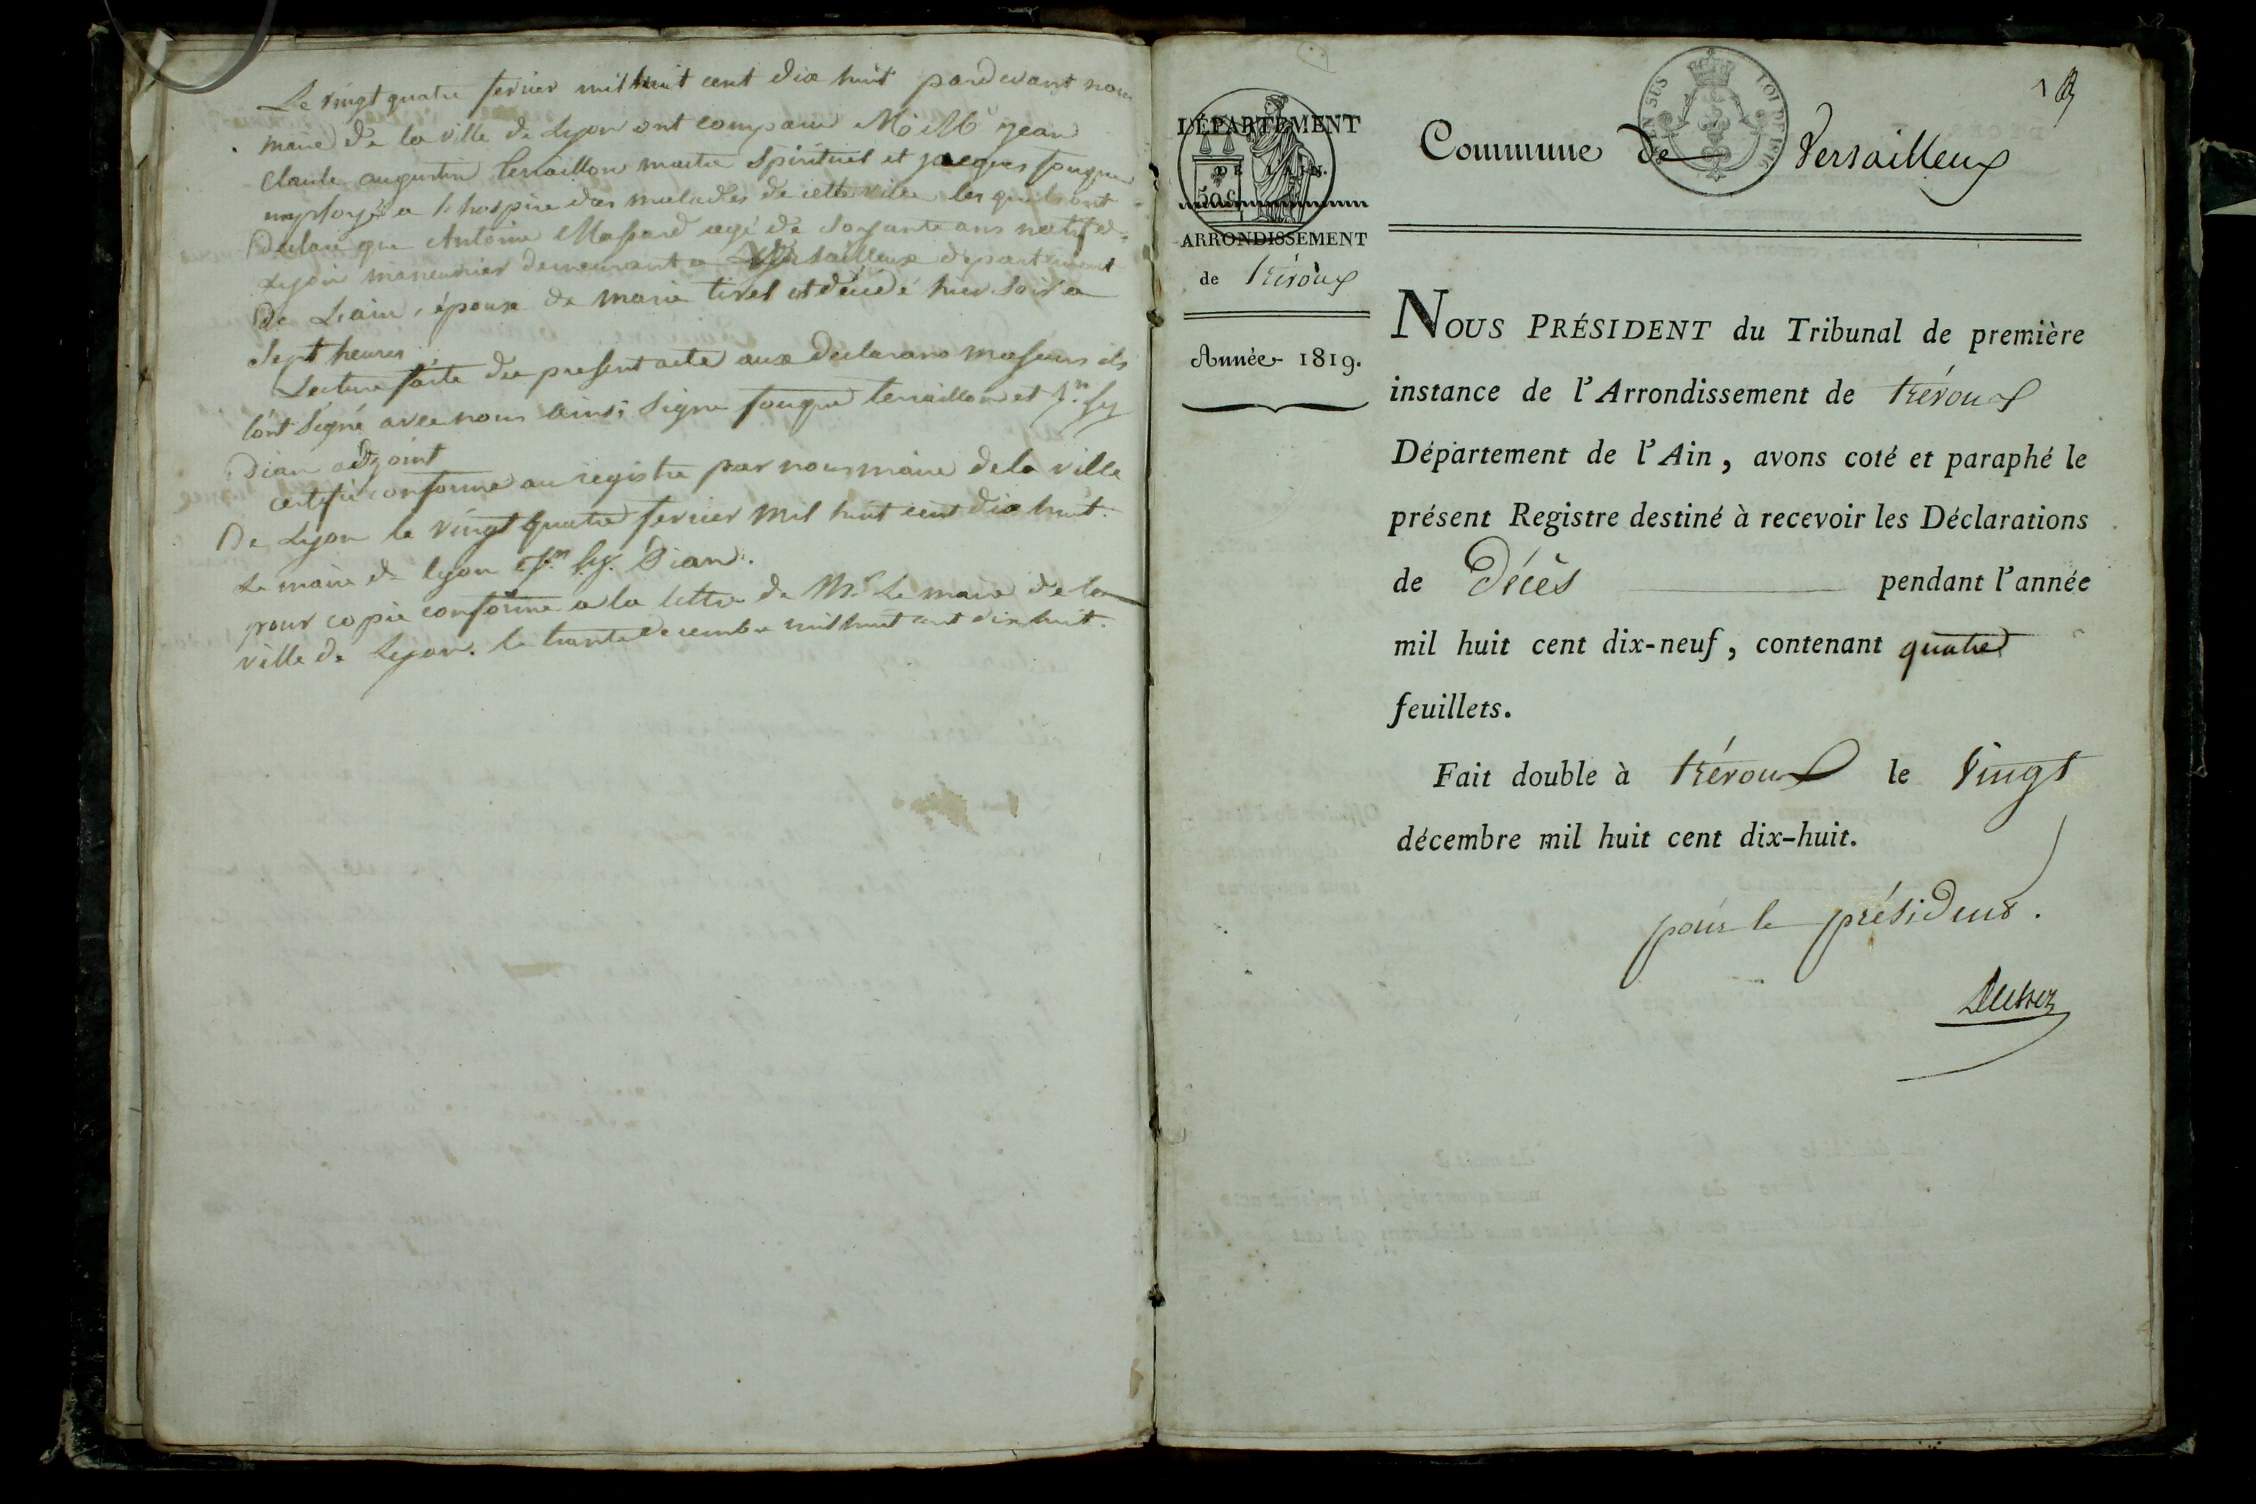 Le vingt quatre fevrier mil huit cent dix huit pardevant nous
maire de la ville de Lyon ont comparu jean
claude augustin terraillon maitre spirituel et jacques fouque
employés a l hospice des malades de cette ville les quels ont
Declaré que Antoine Massard agé de soixante ans natif de
Lyon maneuvrier demeurant a Versailleux departement
De Lain, épouse de marie tivel est décédé hier soir a
sept heures
Lecture faite du present acte aux declarans majeurs ils
l'ont signé avec nous ainsi signé fouque terraillon et
Dian adjoint
certifié conforme au registre par nous maire de la ville
De Lyon le vingt quatre fevrier mil huit cent dix huit.
Le maire de lyon Dian.
pour copie conforme a la lettre de Mr Le maire de la
ville de Lyon. le trente decembre mil huit cent dix huit.
1
DÉPARTEMENT
DE L'AIN.
50 c
ARRONDISSEMENT
de trévoux
Année 1819.
EN SUS
LOI DE 1816
Commune de Versailleux
NOUS PRÉSIDENT du Tribunal de première
instance de l'Arrondissement de trévoux
Département de l'Ain, avons coté et paraphé le
présent Registre destiné à recevoir les Déclarations
de Décès pendant l'année
mil huit cent dix-neuf, contenant quatre
feuillets.
Fait double à trévoux le vingt
décembre mil huit cent dix-huit.
pour le président.